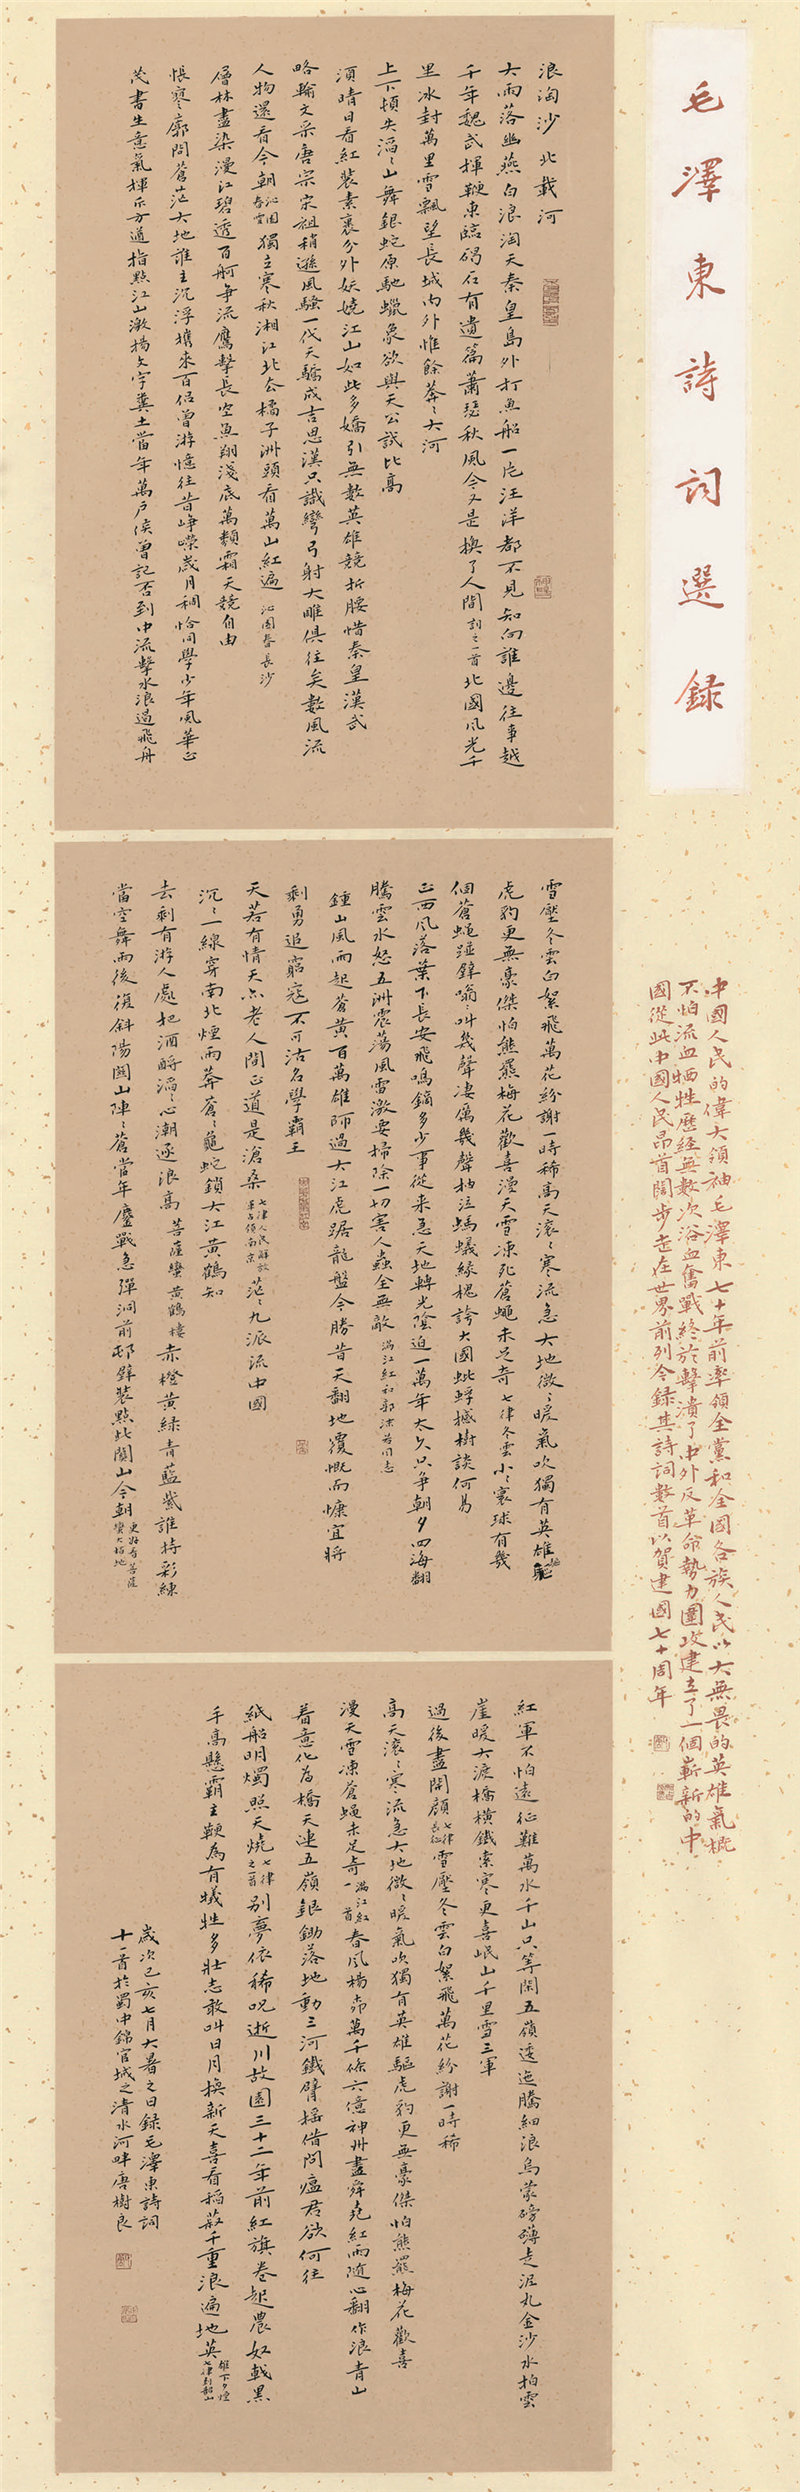 毛澤東詩詞選録
中國人民的偉大領袖毛澤東七十年前率領全黨和全國各族人民以大無畏的英雄氣概
不怕流血牺牲歷經無數次浴血奮戰終於擊潰了中外反革命勢力圍攻建立了一個嶄新的中
國從此中國人民昂首闊步走在世界前列今録其詩詞數首以賀建國七十周年
浪淘沙北載河
大雨落幽燕白浪淘天秦皇島外打魚船一片汪洋都不見知向誰邊往事越
千年魏武揮鞭東臨碣石有遺篇蕭瑟秋風今又是換了人間 詞之一首 北國風光千
里冰封萬里雪飄望長城内外惟餘莽〻大河
上下頓失滔〻山舞銀蛇原馳蠟象欲與天公試比高
須晴日看紅裝素裹分外妖嬈江山如此多嬌引無數英雄競折腰惜秦皇漢武
略輸文采唐宗宋祖稍遜風騷一代天驕成吉思漢只識彎弓射大雕俱往矣數風流
人物還看今朝 沁園春雪 獨立寒秋湘江北去橘子洲頭看萬山紅遍 沁園春長沙
層林盡染漫江碧透百舸争流鷹擊長空魚翔淺底萬類霜天競自由
悵寥廓問蒼茫大地誰主沉浮攜來百侣曾游憶往昔崢嶸歲月稠恰同學少年風華正
茂書生意氣揮斥方遒指點江山激揚文字糞土當年萬户侯曾記否到中流擊水浪遏飛舟
雪壓冬雲白絮飛萬花紛謝一時稀高天滚〻寒流急大地微〻暖氣吹獨有英雄驅
虎豹更無豪傑怕熊羆梅花歡喜漫天雪凍死蒼蠅未足奇 七律冬雲 小〻寰球有幾
個蒼蠅碰壁嗡〻叫幾聲凄厲幾聲抽泣螞蟻緣槐誇大國蚍蜉撼樹談何易
正西風落葉下長安飛鳴鏑多少事從来急天地轉光陰迫一萬年太久只争朝夕四海翻
騰雲水怒五洲震蕩風雷激要掃除一切害人蟲全無敵 滿江紅和郭沫若同志
鍾山風雨起蒼黄百萬雄師過大江虎踞龍盤今勝昔天翻地覆慨而慷宜將
剩勇追窮寇不可沽名學霸王
天若有情天亦老人間正道是滄桑 七律人民解放軍占領南京 茫〻九派流中國
沉〻一線穿南北煙雨莽蒼〻龜蛇鎖大江黄鶴知
去剩有游人處把酒酹滔〻心潮逐浪高 菩薩蠻黄鶴樓 赤橙黄緑青藍紫誰持彩練
當空舞雨後復斜陽關山陣〻蒼當年鏖戰急彈洞前邨壁裝點此關山今朝更好看 菩薩蠻大柏地
紅軍不怕遠征難萬水千山只等閑五嶺逶迤騰細浪烏蒙磅礴走泥丸金沙水拍雲
崖暖大渡橋橫鐵索寒更喜岷山千里雪三軍
過後盡開顔 七律長征 雪壓冬雲白絮飛萬花紛謝一時稀
高天滚〻寒流急大地微〻暖氣吹獨有英雄驅虎豹更無豪傑怕熊羆梅花歡喜
漫天雪凍蒼蠅未足奇 滿江紅一首 春風楊柳萬千條六億神州盡舜堯紅雨随心翻作浪青山
着意化為橋天連五嶺銀鋤落地動三河鐵臂摇借問瘟君欲何往
紙船明燭照天燒 七律之首 别夢依稀咒逝川故園三十二年前紅旗卷起農奴戟黑
手高懸霸主鞭為有犧牲多壯志敢叫日月換新天喜看稻菽千重浪遍地英雄下夕煙 七律到韶山
歲次己亥七月大暑之日録毛澤東詩詞
十一首於蜀中錦官城之清水河畔唐樹良